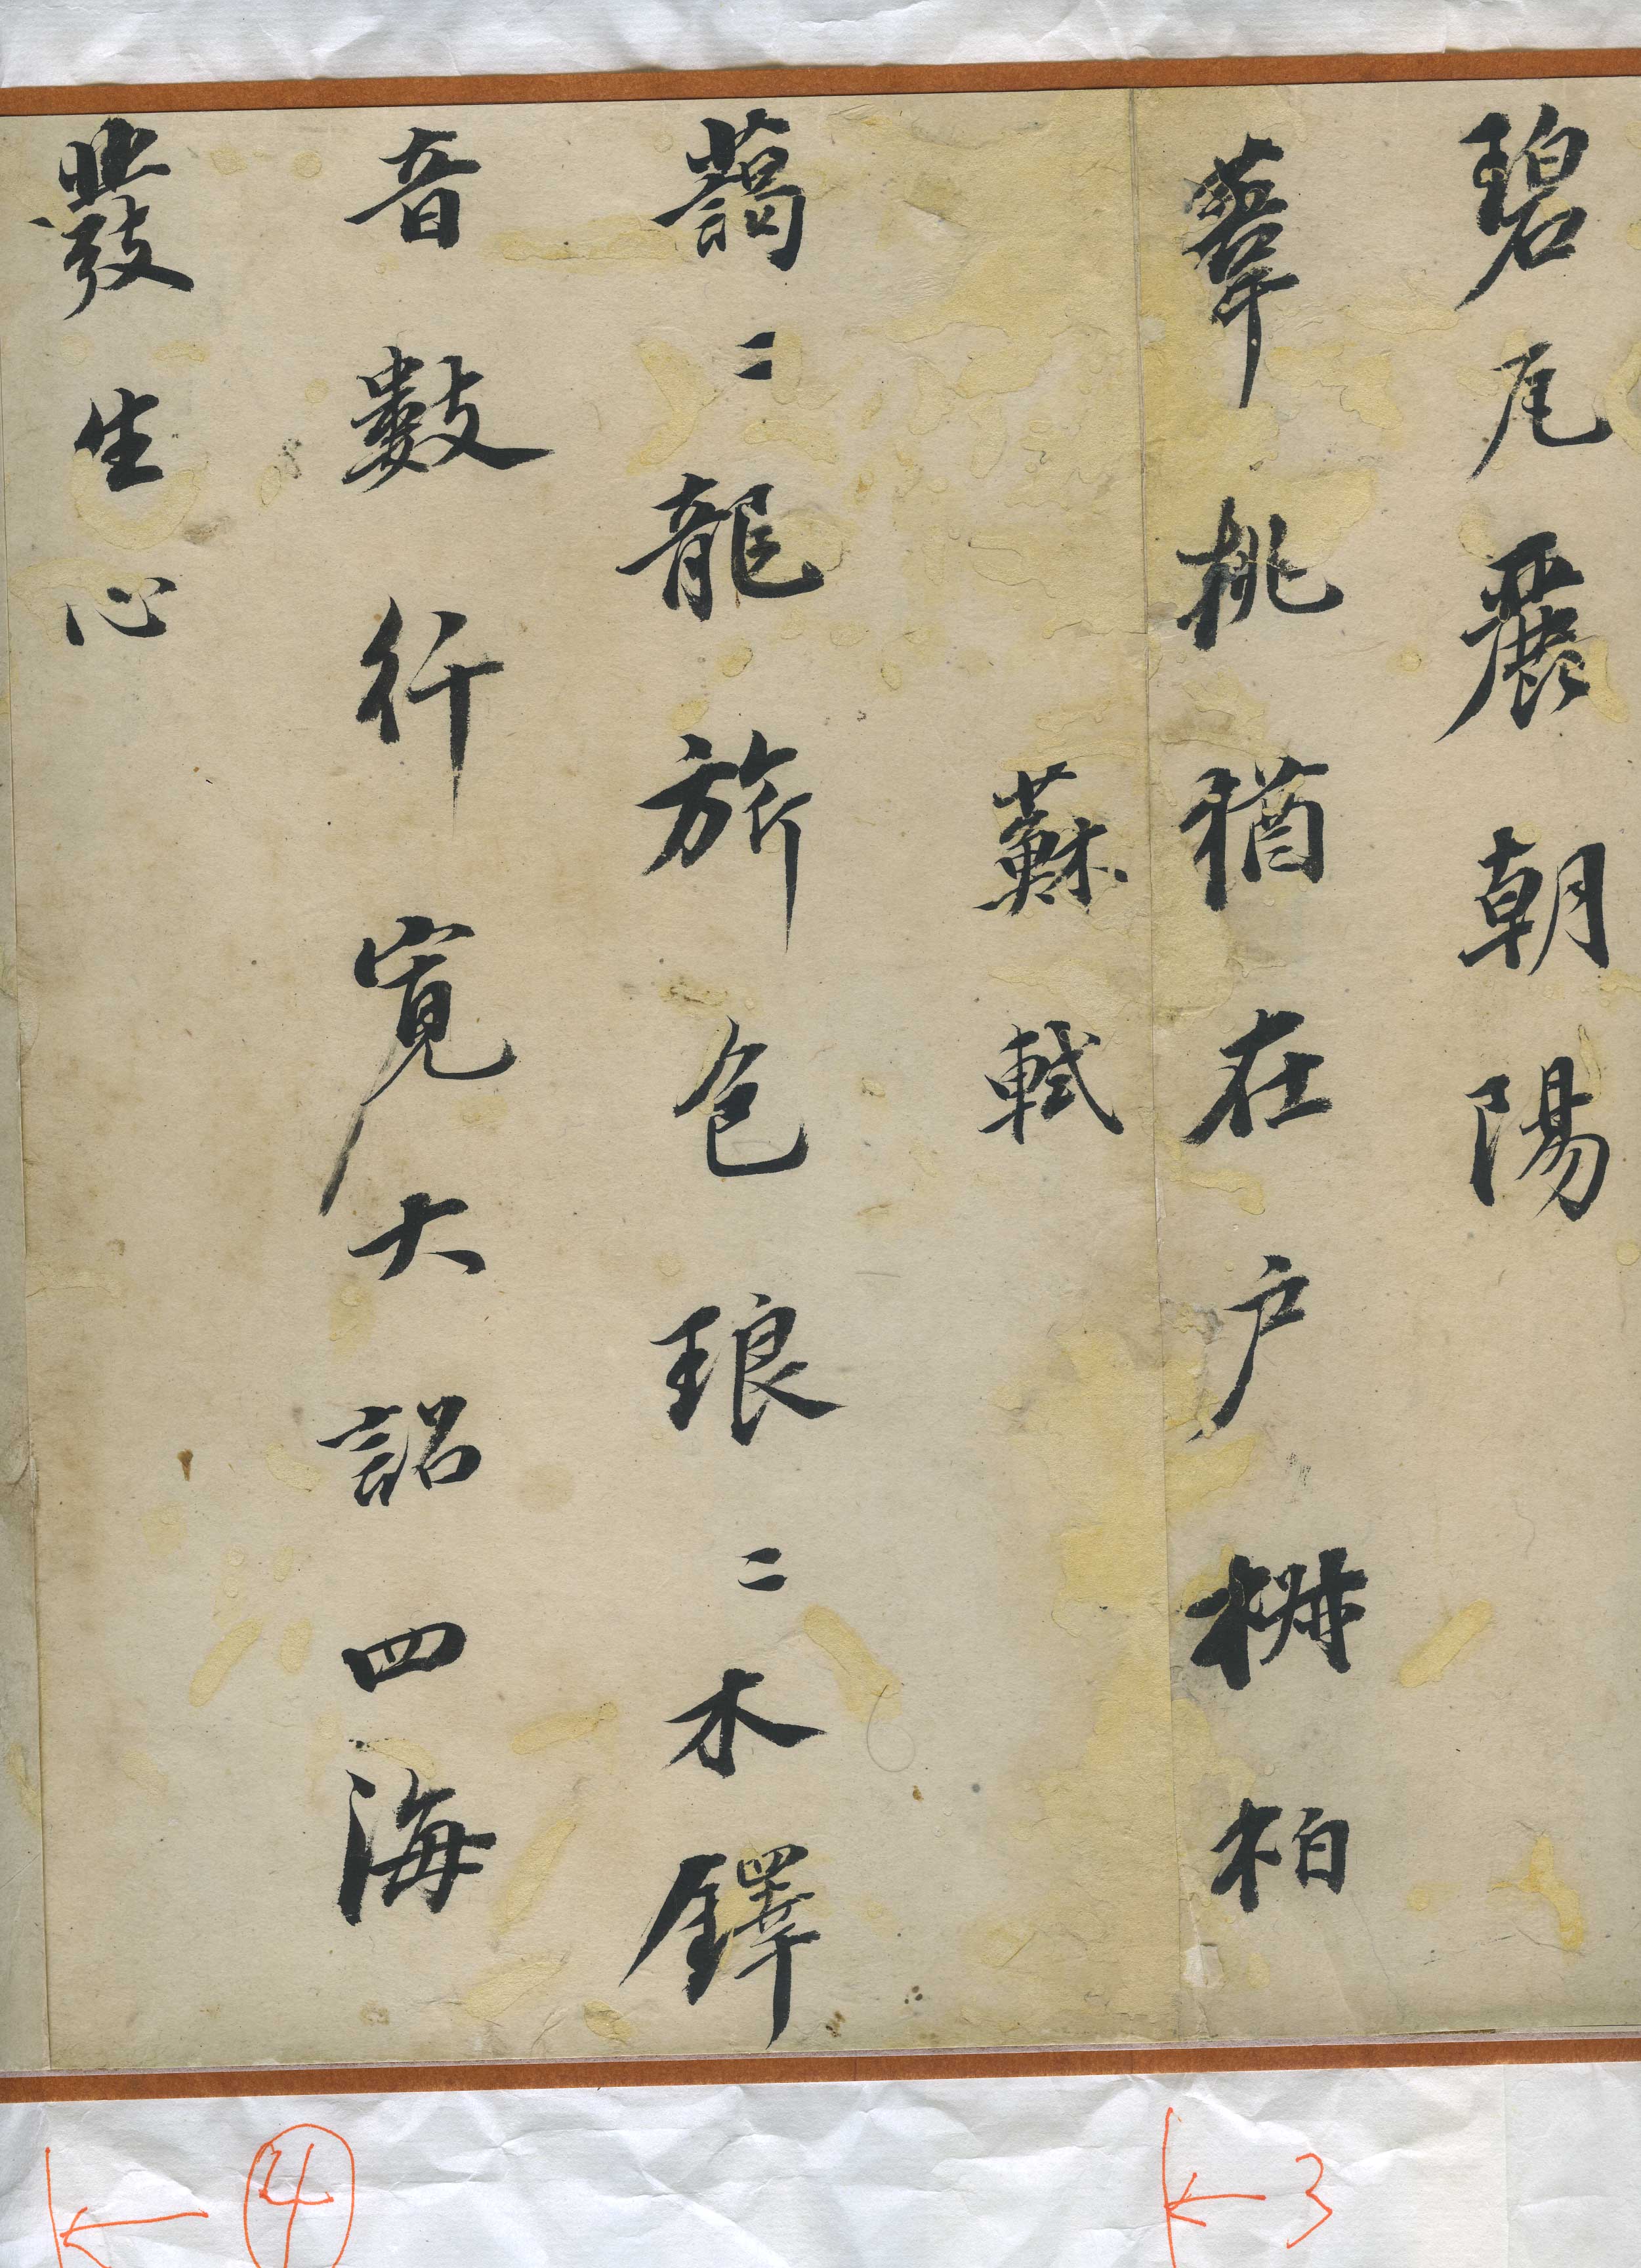 碧瓦麗朝陽
葦桃猶在户椒柏
蘇軾
藹〻龍旂色琅〻木鐸
音數行寬大詔四海
發生心
3
④